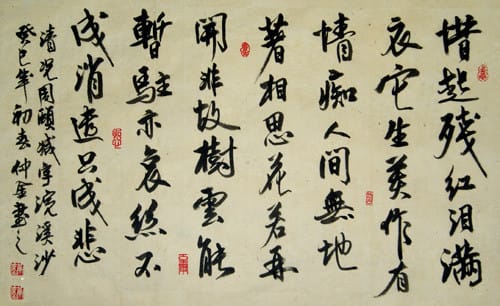 惜起残红泪满
衣它生莫作有
情痴人间無地
著相思花若再
開非故樹雲能
暫駐亦哀絲不
成消遣只成悲
清況周頤减字浣溪沙
癸巳年初春仲金書之